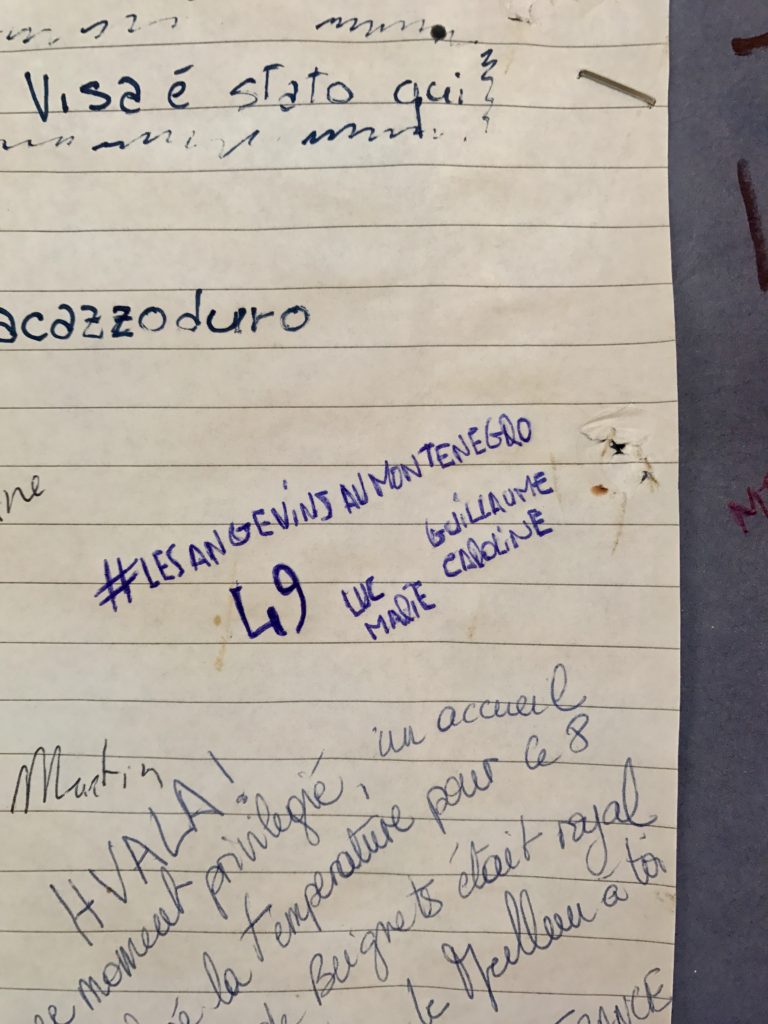 Visa é stato qui
acazzoduro
#LESANGEVINSAUMONTENEGRO
49
LUC
MARIE
GUILLAUME
CAROLINE
Martin
HVALA!
moment privilegié, un accueil
la température pour ce 8
Beignets était royal
Meilleur à toi
FRANCE